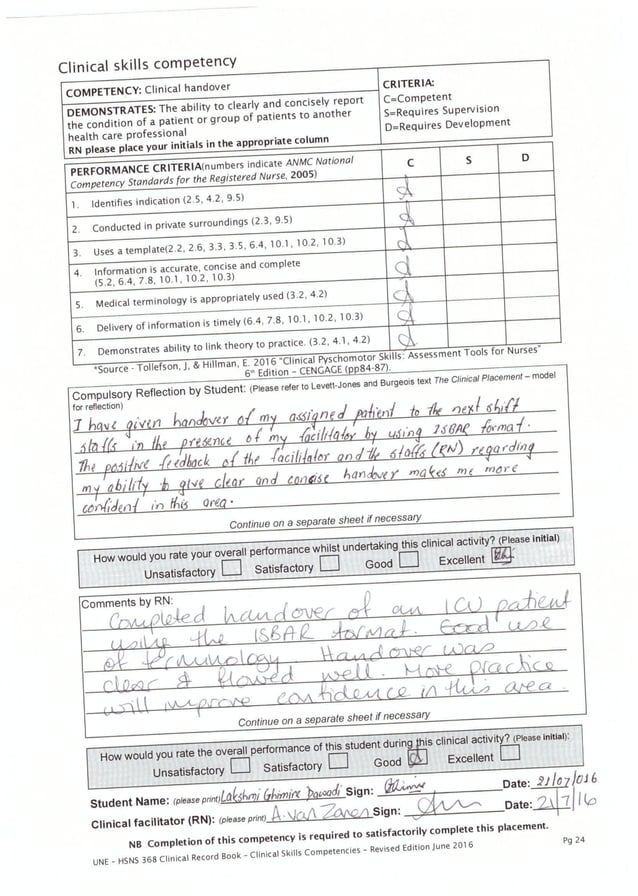 Clinical skills competency
COMPETENCY: Clinical handover
DEMONSTRATES: The ability to clearly and concisely report
the condition of a patient or group of patients to another
health care professional
RN please place your initials in the appropriate column
CRITERIA:
C=Competent
S=Requires Supervision
D=Requires Development
PERFORMANCE CRITERIA(numbers indicate ANMC National
Competency Standards for the Registered Nurse, 2005)
C S D
1. Identifies indication (2.5, 4.2, 9.5)
2. Conducted in private surroundings (2.3, 9.5)
3. Uses a template(2.2, 2.6, 3.3, 3.5, 6.4, 10.1, 10.2, 10.3)
4. Information is accurate, concise and complete
(5.2, 6.4, 7.8, 10.1, 10.2, 10.3)
5. Medical terminology is appropriately used (3.2, 4.2)
6. Delivery of information is timely (6.4, 7.8, 10.1, 10.2, 10.3)
7. Demonstrates ability to link theory to practice. (3.2, 4.1, 4.2)
*Source - Tollefson, J, & Hillman, E. 2016 "Clinical Pyschomotor Skills: Assessment Tools for Nurses"
6th Edition – CENGAGE (pp84-87).
Compulsory Reflection by Student: (Please refer to Levett-Jones and Burgeois text The Clinical Placement – model
for reflection)
I have given handover of my assigned patient to the next shift
staffs in the presence of my facilitator by using ISBAR format.
The positive feedback of the facilitator and the staffs (RN) regarding
my ability to give clear and concise handover makes me more
confident in this area.
Continue on a separate sheet if necessary
How would you rate your overall performance whilst undertaking this clinical activity? (Please initial)
Unsatisfactory Satisfactory Good Excellent
Comments by RN:
Completed handover of an ICU patient
using the ISBAR format. Good use
of terminology. Handover was
clear & flowed well. More practice
will improve confidence in this area.
Continue on a separate sheet if necessary
How would you rate the overall performance of this student during this clinical activity? (Please initial):
Unsatisfactory Satisfactory Good Excellent
Student Name: (please print) Lakshmi Ghimire Dawadi Sign: Date: 21/07/016
Clinical facilitator (RN): (please print) A. Van Zanen Sign: Date: 21/7/16
NB Completion of this competency is required to satisfactorily complete this placement.
UNE – HSNS 368 Clinical Record Book – Clinical Skills Competencies – Revised Edition June 2016
Pg 24